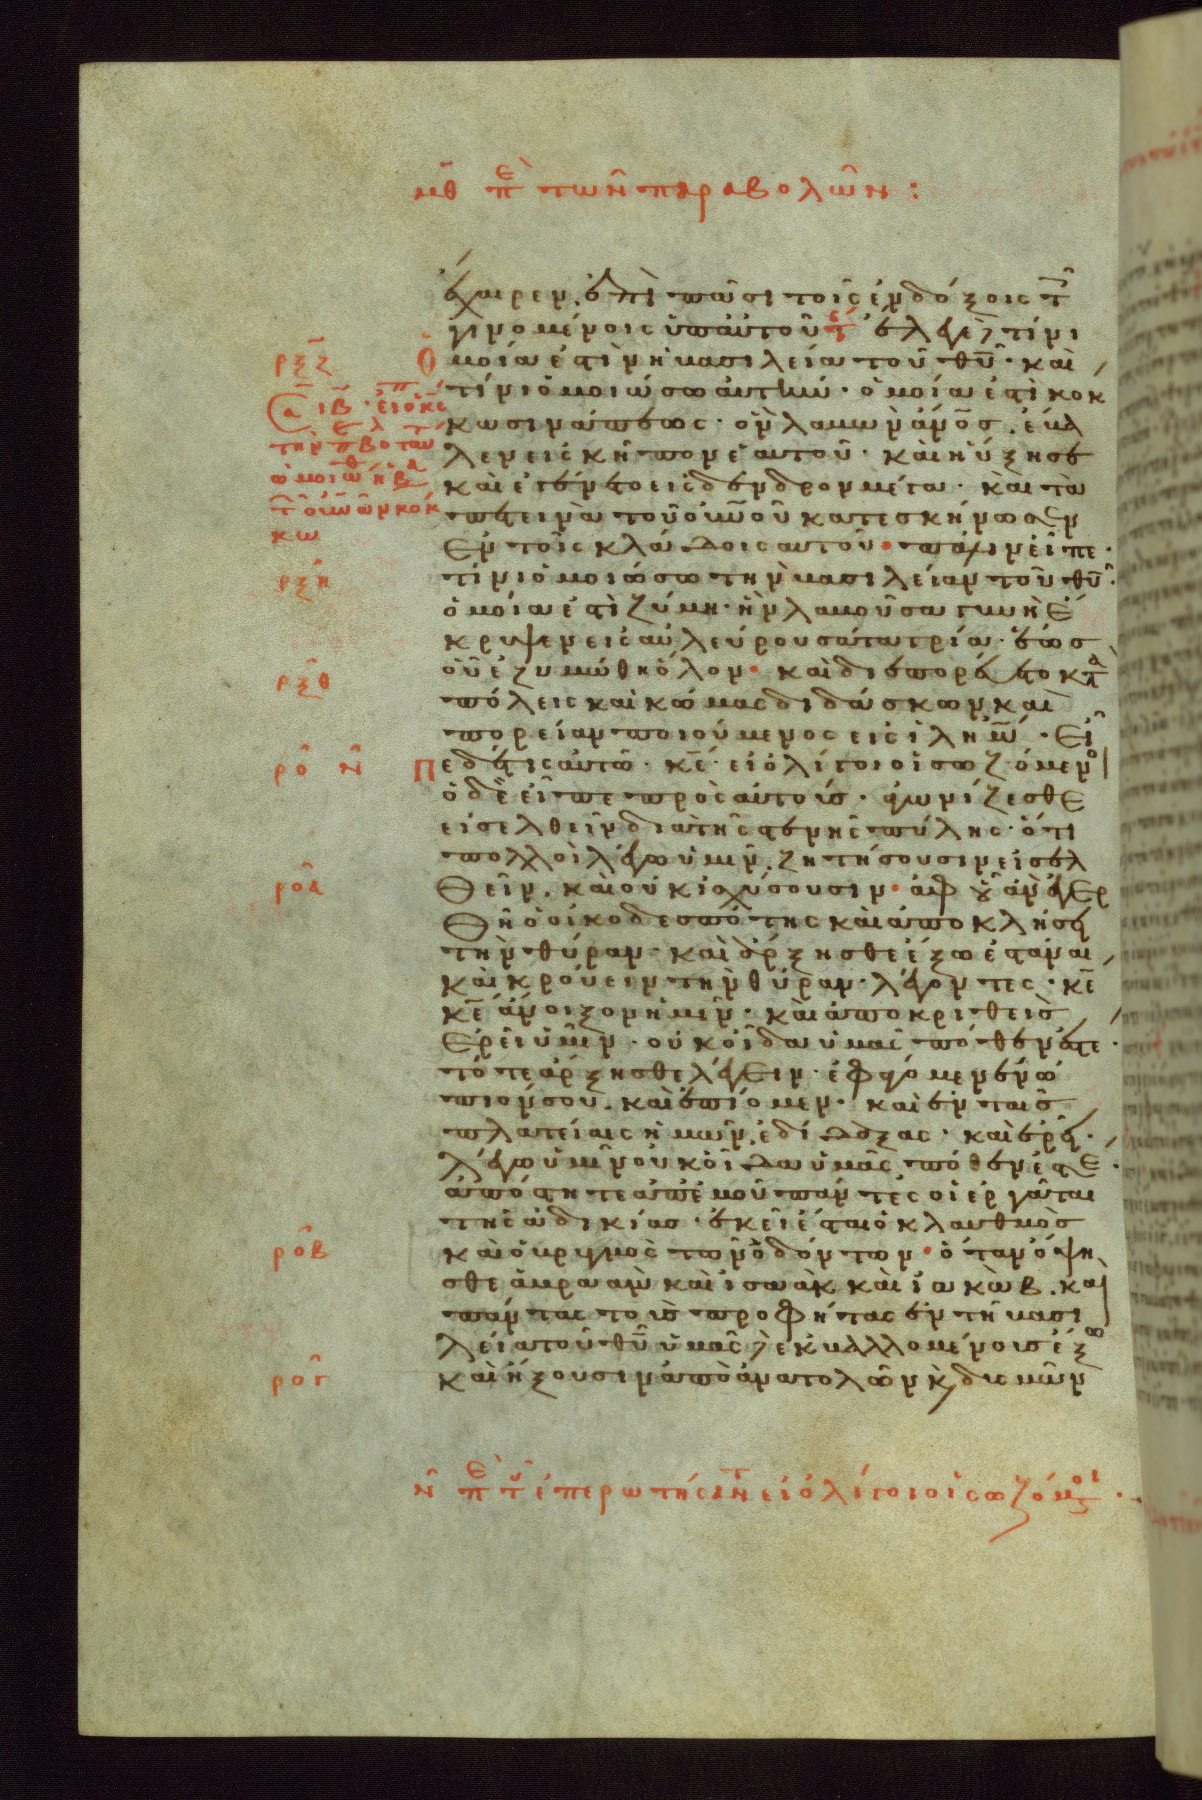 μθ πε τῶν παραβολῶν :
ἔχαιρεν. ἐπὶ πᾶσι τοῖς ἐνδόξοις τοῖς
γινομένοις ὑπ' αὐτοῦ ἔλεγε τίνι
ρξζ ὁμοία ἐστὶν ἡ βασιλεία τοῦ θῦ· καὶ
τίνι ὁμοιώσω αὐτήν· ὁμοία ἐστὶ κόκ
κω σινάπεως· ὃν λαβὼν ἄνος. ἔβα
λεν εἰς κῆπον ἑαυτοῦ· καὶ ηὔξησε
καὶ ἐγένετο εἰς δένδρον μέγα· καὶ τὰ
πετεινὰ τοῦ οὐνοῦ κατεσκήνωσεν
ἐν τοῖς κλάδοις αὐτοῦ· πάλιν εἶπε·
ρξη τίνι ὁμοιώσω τὴν βασιλείαν τοῦ θῦ·
ὁμοία ἐστὶ ζύμη· ἣν λαβοῦσα γυνὴ ἔ
κρυψεν εἰς ἀλεύρου σάτα τρία· ἕως
ρξθ οὗ ἐζυμώθη ὅλον· καὶ διεπορεύετο κτ
πόλεις καὶ κώμας διδάσκων καὶ
πορείαν ποιούμενος εἰς ἱλημ· εἶ
ρο ν πε δέ τις αὐτῶ· κε· εἰ ὀλίγοι οἱ σωζόμενοι
ὁ δὲ εἶπε πρὸς αὐτούς· ἀγωνίζεσθε
εἰσελθεῖν διὰ τῆς στενῆς πύλης· ὅτι
πολλοὶ λέγω ὑμῖν. ζητήσουσιν εἰσελ
ροα θεῖν. καὶ οὐκ ἰσχύσουσιν· ἀφ' οὗ ἂν ἐγερ
θῆ ὁ οἰκοδεσπότης καὶ ἀποκλήσῃ
τὴν θύραν· καὶ ἄρξησθε ἔξω ἑστάναι
καὶ κρούειν τὴν θύραν· λέγοντες· κε
κε ἄνοιξον ἡμῖν· καὶ ἀποκριθεὶς
ἐρεῖ ὑμῖν· οὐκ οἶδα ὑμᾶς πόθεν ἐστέ·
τότε ἄρξησθε λέγειν· ἐφάγομεν ἐνώ
πιόν σου. καὶ ἐπίομεν· καὶ ἐν ταῖς
πλατείαις ἡμῶν ἐδίδαξας· καὶ ἐρεῖ·
λέγω ὑμῖν οὐκ οἶδα ὑμᾶς πόθεν ἐστέ·
ἀπόστητε ἀπ' ἐμοῦ πάντες οἱ ἐργάται
τῆς ἀδικίας· ἐκεῖ ἔσται ὁ κλαυθμὸς
ροβ καὶ ὁ βρυγμὸς τῶν ὀδόντων· ὅταν ὄψη
σθε ἀβραὰμ καὶ ἰσαὰκ καὶ ἰακὼβ. καὶ
πάντας τοὺς προφήτας ἐν τῆ βασι
λεία τοῦ θῦ ὑμᾶς δὲ ἐκβαλλομένους ἔξω
ρογ καὶ ἥξουσιν ἀπὸ ἀνατολῶν καὶ δυσμῶν
ν πε τοῦ ἐπερωτήσαντος εἰ ὀλίγοι οἱ σωζόμενοι